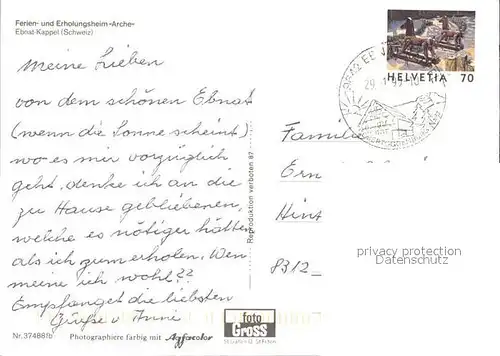 Ferien- und Erholungsheim «Arche»
Ebnat-Kappel (Schweiz)
Meine Lieben
von dem schönen Ebnat
(wenn die Sonne scheint)
wo es mir vorzüglich
geht, denke ich an die
zu Hause gebliebenen,
welche es nötiger hätten
als ich zum erholen. Wen
meine ich wohl??
Empfanget die liebsten
Grüße v Anni
Nr. 37488fb
Photographiere farbig mit Agfacolor
Reproduktion verboten 87
foto
Gross
St. Gallen
HELVETIA 70
9642 EB
29.
Familie
Ern
Hint
8312
privacy protection
Datenschutz